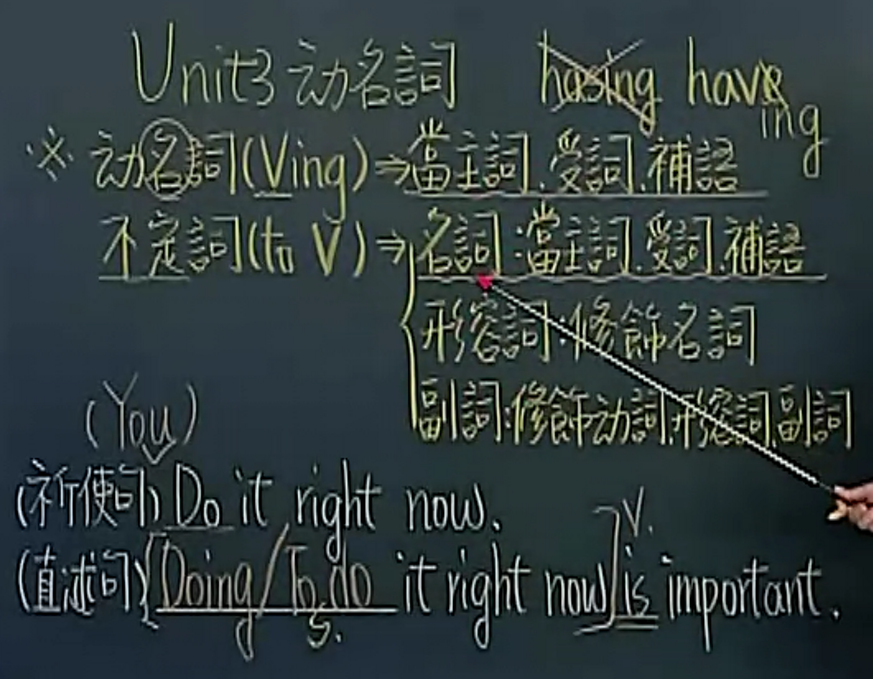 Unit3 动名詞 hasing have ing
※ 动名詞(Ving)⇒當主詞.受詞.補語
不定詞(to V)⇒名詞:當主詞.受詞.補語
形容詞:修飾名詞
副詞:修飾动詞.形容詞.副詞
(You)
(祈使句) Do it right now.
V.
(直述句)[Doing/To do it right now] is important.
S.